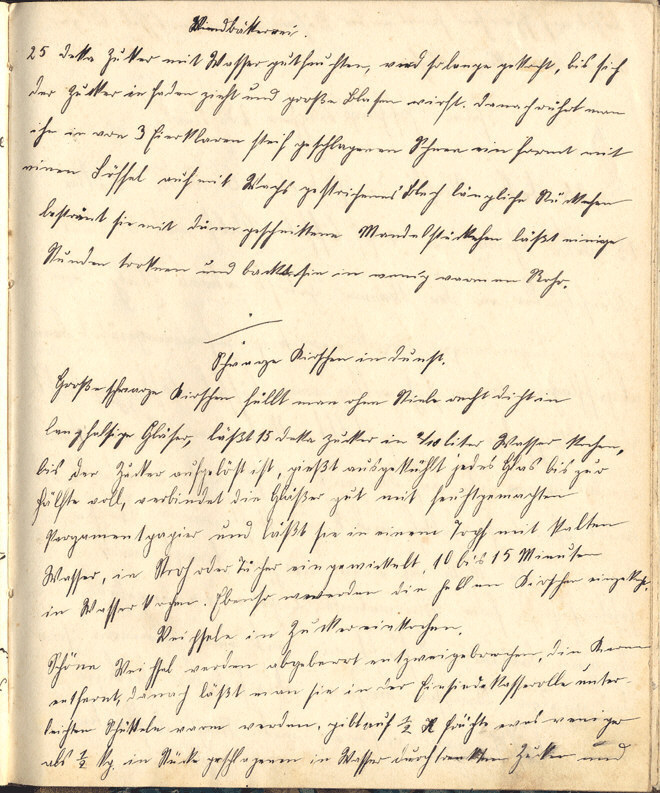 Windbäkerrei.
25 deka Zuker mit Wasser gutfeuchten, wird so lange gekocht, bis sich
der Zucker in Faden zieht und große Blasen wirft. Danach rührt man
ihn in von 3 Eierklaren steif geschlagenen Schnee ein formt mit
einen Löffel auf mit Wachs gestrichenes Blech längliche Stückchen
bestreut sie mit dünn geschnittene Mandelstückchen läßt einige
Stunden troknen und backt sie in wenig warmen Rohr.
Schwarze Kirschen in Dunst.
Große schwarze Kirschen füllt man ohne Stiele recht dicht in
langhalsige Gläser, läßt 15 deka Zucker in /10 Liter Wasser kochen,
bis der Zucker aufgelöst ist, gießt ausgekühlt jedes Glas bis zur
Hälfte voll, verbindet die Gläßer gut mit feuchtgemachten
Pergamentpapier und läßt sie in einem Topf mit kalten
Wasser, in Stroh oder Tücher eingewickelt, 10 bis 15 Minuten
in Wasser kochen. Ebenso werden die hellen Kirschen eingekocht.
Weichseln in Zucker einkochen.
Schöne Weichsel werden abgebeert entzweigebrochen, die Kerne
entfernt, danach läßt man sie in der Einsiedekasserolle unter
leichten Schütteln warm werden, gibt auf 1/2 Früchte etwas weniger
als 1/2 Kg. in Stücke geschlagenen in Wasser durchtränkten Zucker und